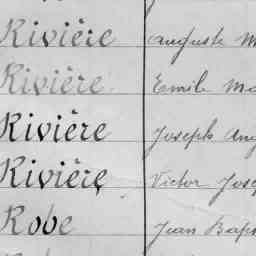 Rivière Auguste M
Rivière Emile Ma
Rivière Joseph Aug
Rivière Victor Jose
Robe Jean Bap